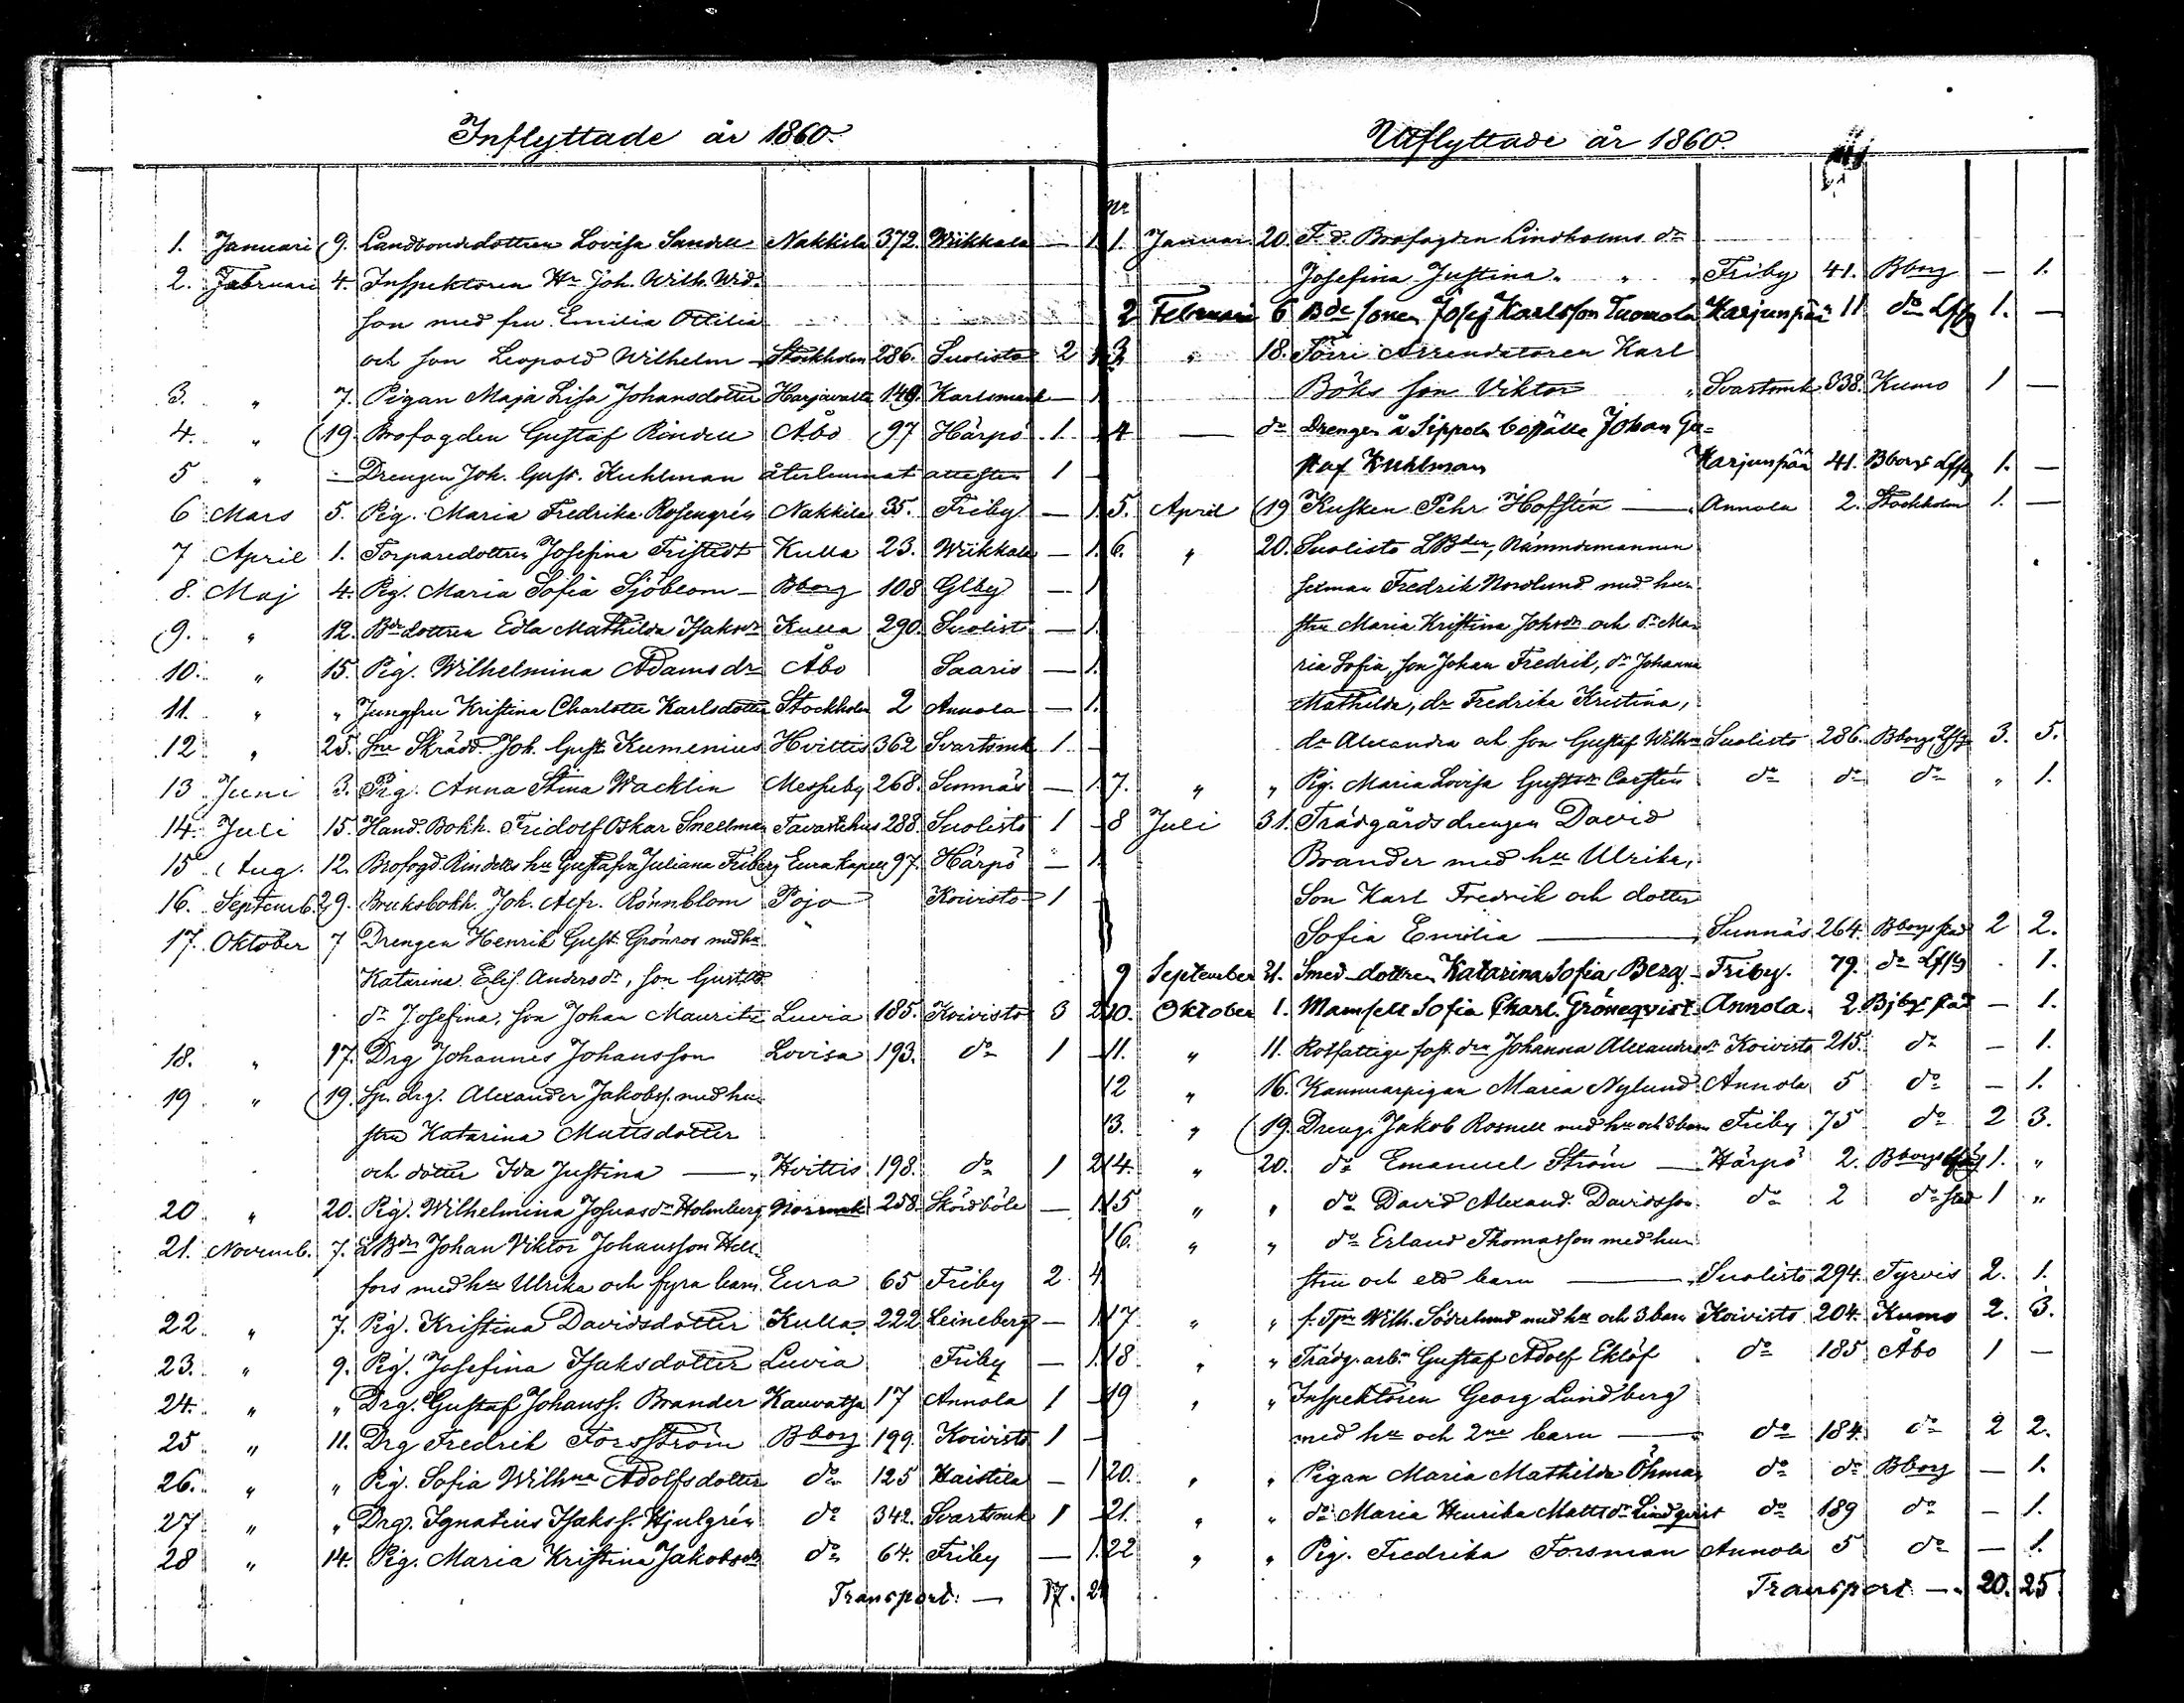 Inflyttade år 1860.
1. Januari 9. Landbondedottren Lovisa Sandell Nakkila 372. Wiikkala — 1.
2. Februari 4. Inspektoren Hr Joh. Wilh. Wid-
son med fru Emilia Ottilia
och son Leopold Wilhelm — Stockholm 286. Suolisto 2
3. " 7. Pigan Maja Lisa Johansdotter Harjavalta 149. Karlsmark — 1
4. " 19. Brofogden Gustaf Rindell Åbo 97 Härpö 1. —
5 " — Drengen Joh. Gust. Kuhlman återlemnat attesten 1 —
6 Mars 5. Pig. Maria Fredrika Rosengrén Nakkila 35. Friby — 1.
7 April 1. Torparedottren Josefina Fristedt Kulla 23. Wiikkala — 1.
8. Maj 4. Pig. Maria Sofia Sjöblom — Bborg 108 Glby — 1
9. " 12. Bdedottren Edla Mathilda Isaksdr Kulla 290. Suolist — 1.
10. " 15. Pig. Wilhelmina Adamsdr Åbo Saaris — 1.
11. " " Jungfru Kristina Charlotta Karlsdotter Stockholm 2 Annola — 1.
12 " 25. Skrädd. Joh. Gust. Kumenius Hvittis 362 Svartsmk 1. —
13 Juni 3. Pig. Anna Stina Wacklin Messuby 268. Sunnäs — 1.
14. Juli 15. Hand. Bokh. Fridolf Oskar Snellman Tavastehus 288. Suolisto 1 —
15 Aug. 12. Brofogd. Rindells hu Gustafva Juliana Friberg Eura kapell 97. Härpö — 1.
16. Septemb. 29. Bruksbokh. Joh. Alfr. Rönnblom Pojo Koivisto 1 —
17. Oktober 7 Drengen Henrik Gust. Grönros med hu
Katarina Elis. Andersdr, son Gust.
dr Josefina, son Johan Mauritz Luvia 185. Koivisto 3 2
18. " 17. Drg Johannes Johansson Lovisa 193. do 1 —
19 " 19. Sp. drg. Alexander Jakobss. med hu-
stru Katarina Mattsdotter
och dotter Ida Justina — " Hvittis 198. do 1 2
20 " 20. Pig. Wilhelmina Josuasdr Holmberg Norrmk 258. Sködböle — 1
21. Novemb. 7. LBdn Johan Viktor Johansson Hell-
fors med hu Ulrika och fyra barn Eura 65 Friby 2. 4
22 " 7. Pig. Kristina Davidsdotter Kulla 222 Leineberg — 1.
23. " 9. Pig. Josefina Isaksdotter Luvia Friby — 1.
24. " " Drg. Gustaf Johanss. Brander Kauvatsa 17 Annola 1 —
25 " 11. Drg Fredrik Forsström Bborg 199. Koivisto 1 —
26. " " Pig. Sofia Wilhna Adolfsdotter do 125 Haistila — 1
27 " " Drg. Ignatius Isakss. Hjulgrén do 342. Svartsmk 1 —
28 " 14. Pig. Maria Kristina Jakobsdr do 64. Friby — 1.
Transport: — 17. 2
Utflyttade år 1860.
Nr
1. Januari 20. F. d. Brofogden Lindholms dr
Josefina Justina " " Friby 41. Bborg — 1.
2 Februari 6 Bde sonen Josef Karlsson Tuomola Karjunpää 11 do Lffg 1. —
3 " 18. Förri Arrendatoren Karl
Böks son Viktor " Svartsmk 338. Kumo 1 —
4 — do Drengen å Sippola Johan Gu-
staf Kuhlman Karjunpää 41. Bborgs Lffg 1. —
5. April 19 Kusken Pehr Hoffstén — Annola 2. Stockholm 1. —
6. " 20. Suolisto LBden, Nämndemannen
sexman Fredrik Nordlund med hu-
stru Maria Kristina Johsdr och dr Ma-
ria Sofia, son Johan Fredrik, dr Johanna
Mathilda, dr Fredrika Kristina,
dr Alexandra och son Gustaf Wilhm Suolisto 286. Bborgs Lffg 3. 5.
7. " " Pig. Maria Lovisa Gustsdr Carstén do do do " 1.
8 Juli 31. Trädgårdsdrengen David
Brander med hu Ulrika,
Son Karl Fredrik och dotter
Sofia Emilia — Sunnäs 264. Bborgs stad 2 2.
9 September 21. Smed-dottren Katarina Sofia Berg — Friby. 79. do Lffg . 1.
10. Oktober 1. Mamsell Sofia Charl. Grönqvist Annola. 2. Bjbgs stad — 1.
11. " 11. Rotfattige Johanna Alexandersdr Koivisto 215. do — 1.
12 " 16. Kammarpigan Maria Nylund Annola 5 do — 1.
13. " 19. Dreng. Jakob Rosnell med hu och 3 barn Friby 75 do 2 3.
14. " 20. do Emanuel Ström — Härpö 2. Bborgs Lffg 1. "
15 " " do David Alexand. Davidsson do 2 do stad 1 "
16. " " do Erland Thomasson med hu-
stru och ett barn — Suolisto 294. Tyrvis 2. 1.
17 " " f. Tpn Wilh. Söderlund med hu och 3 barn Koivisto 204. Kumo 2. 3.
18 " " Trädg. arb. Gustaf Adolf Eklöf do 185 Åbo 1 —
19 " " Inspektoren Georg Lundberg
med hu och 2ne barn — do 184. do 2 2.
20. " " Pigan Maria Mathilda Öhman do do Bborg — 1.
21. " " do Maria Henrika Mattsdr Lindqvist do 189 do — 1.
22 " " Pig. Fredrika Forsman Annola 5 do — 1.
Transport — 20. 25